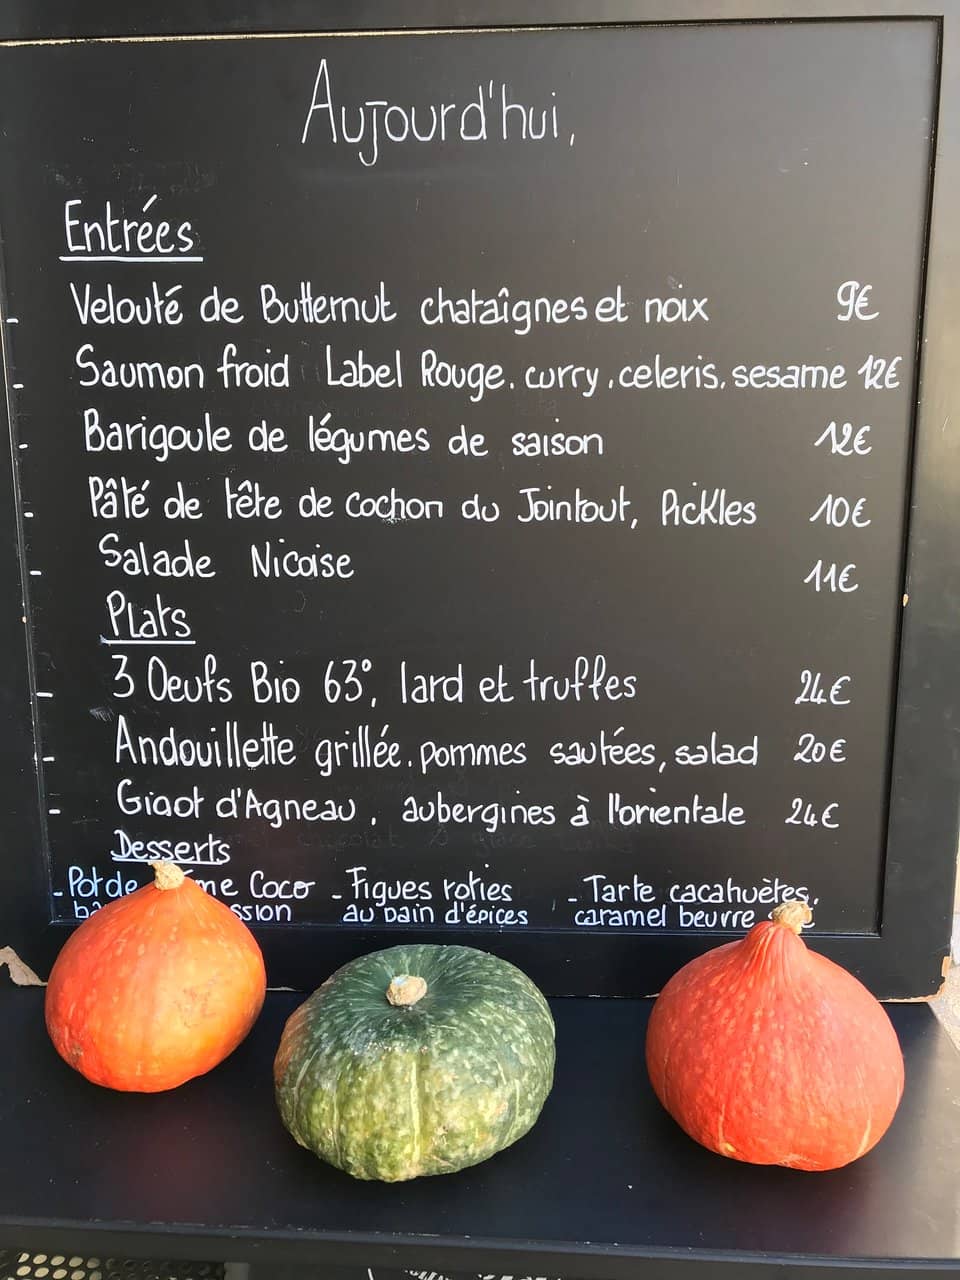 Aujourd'hui,
Entrées
- Velouté de Butternut chataîgnes et noix 9€
- Saumon froid Label Rouge, curry, celeris, sesame 12€
- Barigoule de légumes de saison 12€
- Pâté de tête de cochon du Jointout, Pickles 10€
- Salade Nicoise 11€
Plats
- 3 Oeufs Bio 63°, lard et truffes 24€
- Andouillette grillée, pommes sautées, salad 20€
- Gigot d'Agneau, aubergines à l'orientale 24€
Desserts
- Pot de Coco - Figues roties - Tarte cacahuètes,
au pain d'épices caramel beurre